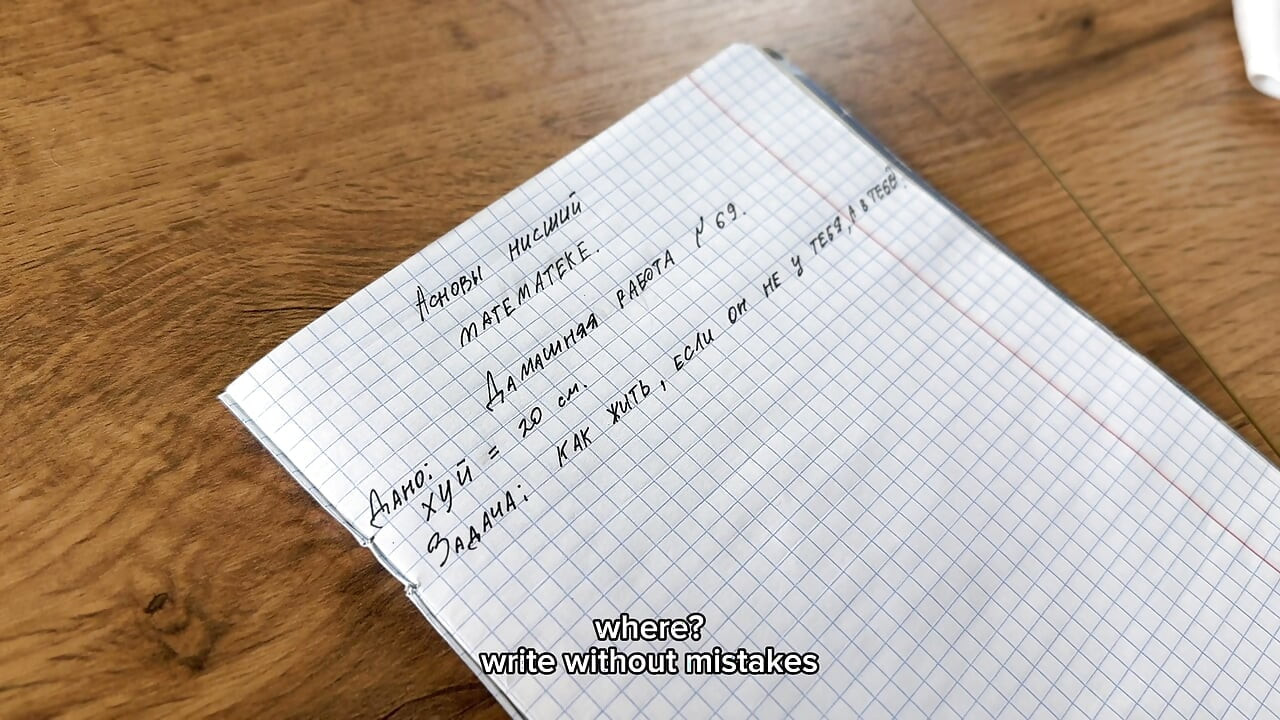 Асновы нисшй
математеке.
Дамашняя работа № 69.
Дано:
хуй = 20 см.
Задача: как жить, если он не у тебя, а в тебе.
where?
write without mistakes